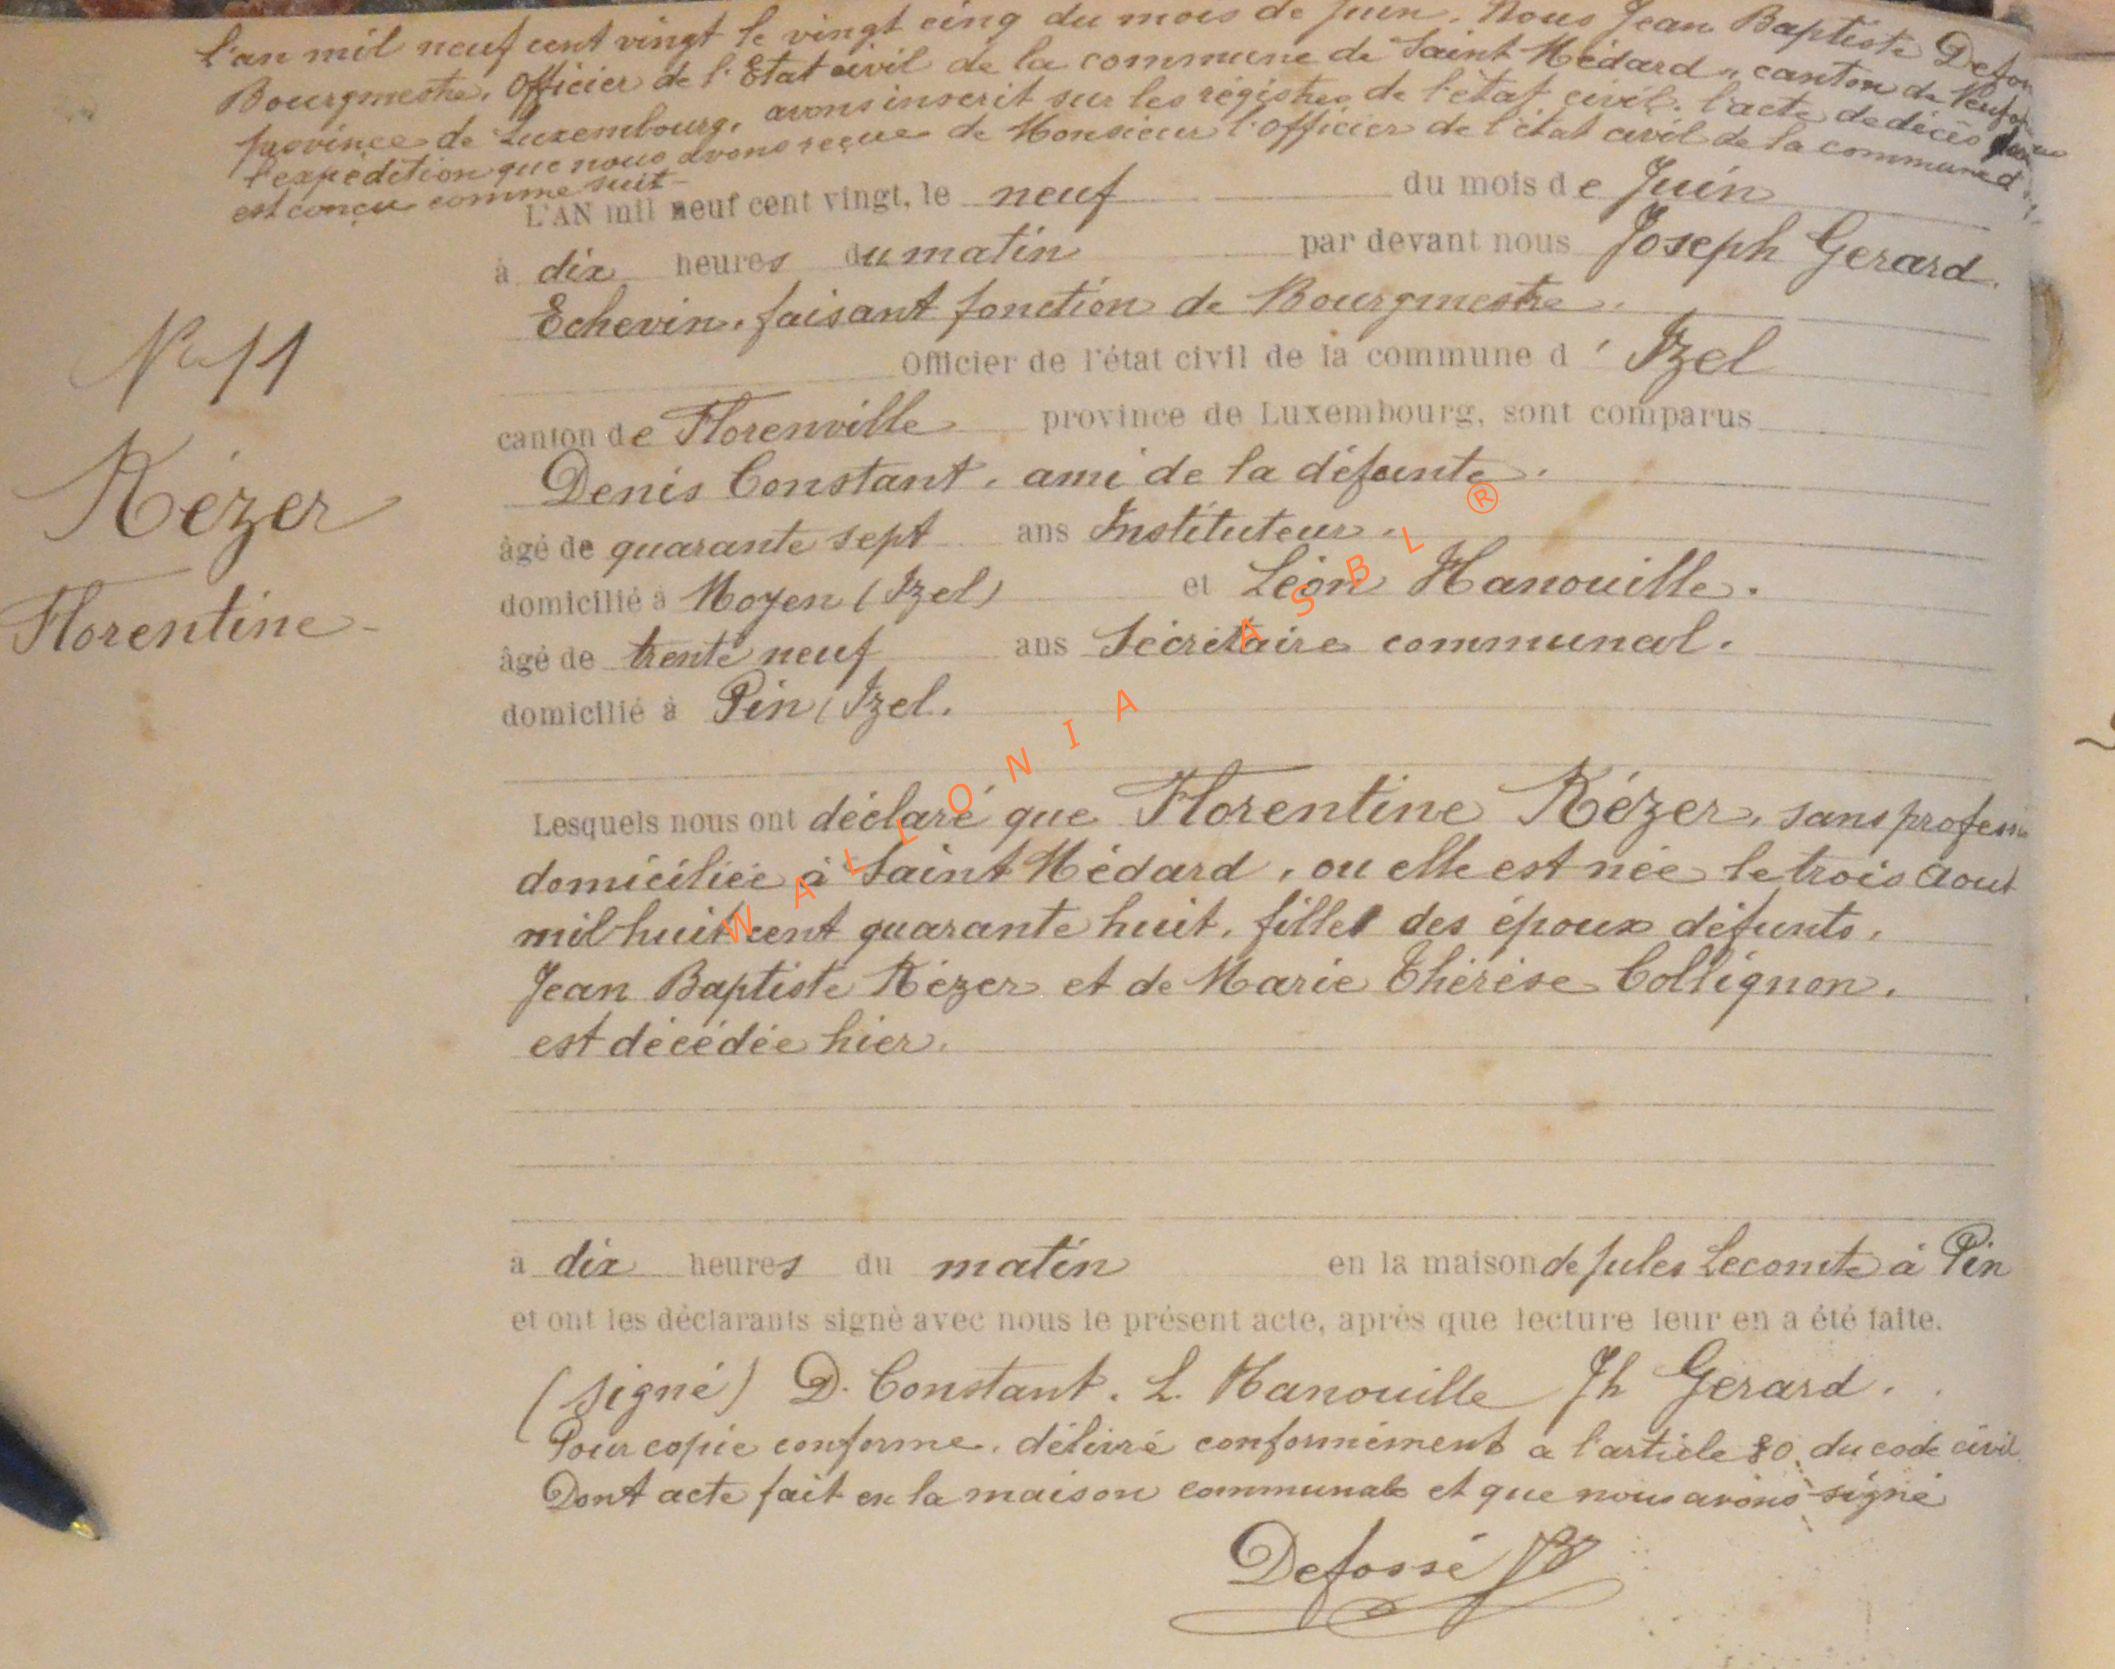 l'an mil neuf cent vingt le vingt cinq du mois de Juin. Nous Jean Baptiste
Bourgmestre, Officier de l'Etat civil de la commune de Saint Médard, canton de
province de Luxembourg, avons inscrit sur les régistres de l'état civil, l'acte de décès
l'expédition que nous avons reçue de Monsieur l'officier de l'état civil de la commune d
est conçu comme suit
L'AN mil neuf cent vingt, le neuf du mois de Juin
à dix heures du matin par devant nous Joseph Gerard
Echevin, faisant fonction de Bourgmestre.
Officier de l'état civil de la commune d' Izel
N° 11
canton de Florenville province de Luxembourg, sont comparus
Denis Constant, ami de la défunte.
Kézer
âgé de quarante sept ans Instituteur.
domicilié à Moyen (Izel) et Léon Hanouille.
Florentine
âgé de trente neuf ans Sécrétaire communal.
domicilié à Pin (Izel.
Lesquels nous ont déclaré que Florentine Kézer, sans
domiciliée à Saint Médard, ou elle est née le trois Aout
mil huit cent quarante huit, fille des époux défunts,
Jean Baptiste Kézer et de Marie Thérèse Collignon,
est décédée hier.
à dix heures du matin en la maison de Jules Lecomte à Pin
et ont les déclarants signé avec nous le présent acte, après que lecture leur en a été faite.
(signé) D. Constant. L. Hanouille Jh Gerard.
Pour copie conforme, délivré conformément a l'article 80, du code civil
Dont acte fait en la maison communale et que nous avons signé
Defossé JB
WALLONIA ASBL ®